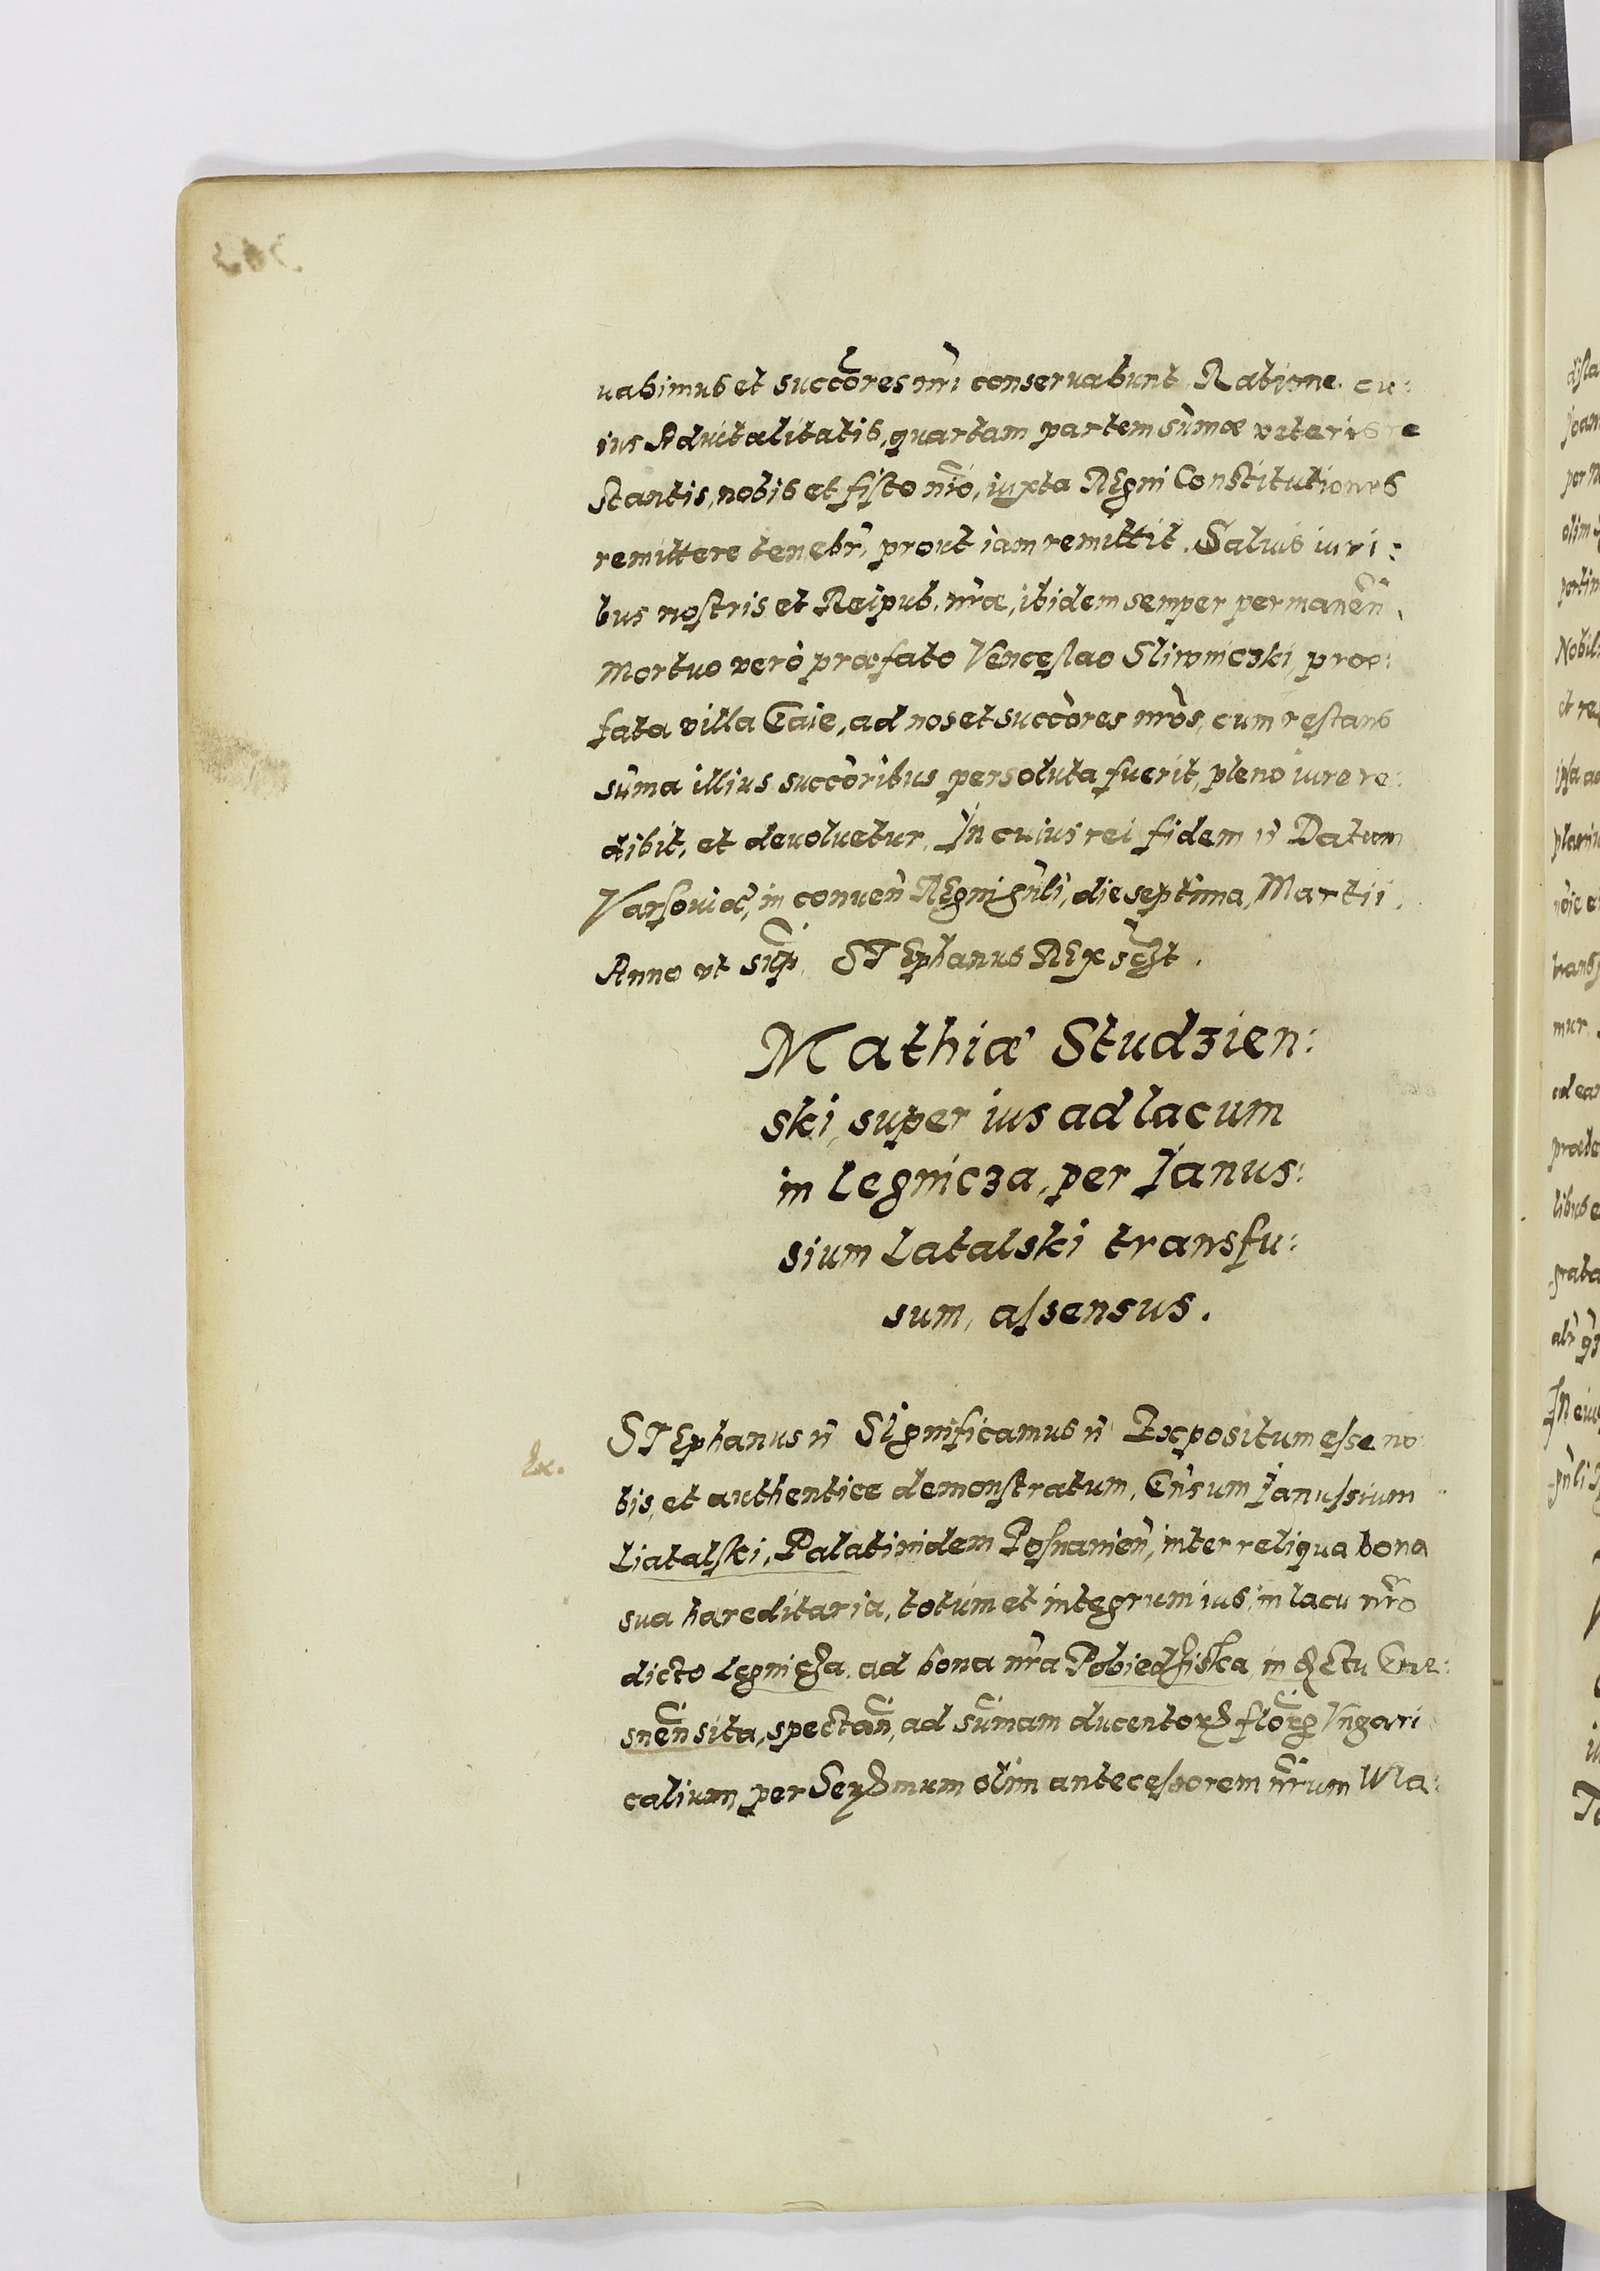 uabimus et succores nri conseruabunt. Ratione cu:
ius Aduitalitatis, quartam partem sumæ veteris re
stantis, nobis et fisco nro, iuxta REgni Constitutiones
remittere tenebr, prout iam remittit. Saluis iuri:
bus nostris et Reipub. nræ, ibidem semper permanen.
Mortuo verò præfato Venceslao Sliwniczki, præ:
fata villa Gaie, ad nos et succores nros, cum restans
suma illius succoribus persoluta fuerit, pleno iure re:
dibit, et deuoluetur. In cuius rei fidem ñ Datum
Varsouiæ, in conuen REgni gnli, die septima, Martii.
Anno vt sup. STEphanus REx scst.
Mathiæ Studzien:
ski, super ius ad lacum
in Legnicza, per Janus:
sium Latalski transfu:
sum, assensus.
STEphanus ñ Significamus ñ Expositum esse no
bis, et authentice demonstratum, Gnsum Janussium
Liatalski, Palatinidem Posnanien, inter reliqua bona
sua hareditaria, totum et integrum ius, in lacu nro
dicto Legnicza, ad bona nra Pobiedziska, in Gne:
snen sita, spectan, ad sumam ducentorum florenorum Vngari
calium, per Sermum olim antecessorem nrum Wla: